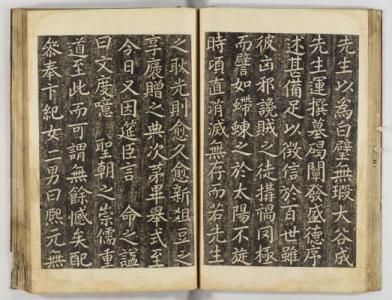 先生以爲白璧無瑕大谷成
先生運撰墓碣闡發盛德序
述甚備足以徵信於百世雖
彼凶邪讒賊之徒搆禍罔極
而譬如蝃蝀之於太陽不旋
時頃直消滅無存而若先生
之耿光則愈久愈新俎豆之
享褒贈之典次苐畢擧式至
今日又因筵臣言命之諡
曰文度噫聖朝之崇儒重
道至此而可謂無餘憾矣配
叅奉卞紀女二男曰熙元無